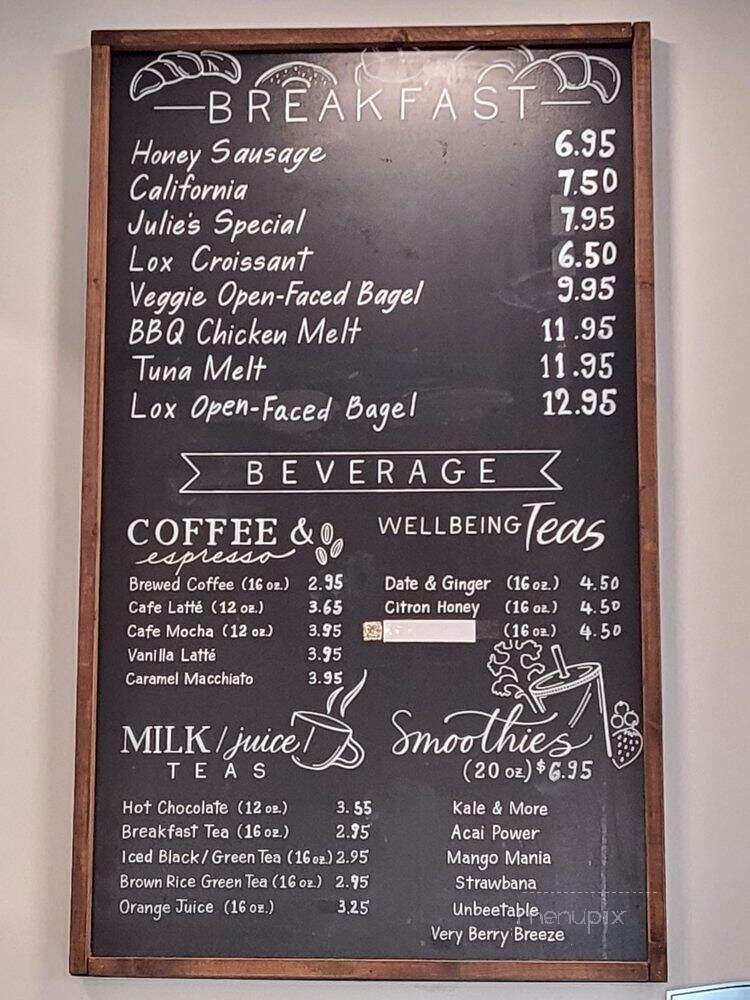 BREAKFAST
Honey Sausage 6.95
California 7.50
Julie's Special 7.95
Lox Croissant 6.50
Veggie Open-Faced Bagel 9.95
BBQ Chicken Melt 11.95
Tuna Melt 11.95
Lox Open-Faced Bagel 12.95
BEVERAGE
COFFEE &
espresso
Brewed Coffee (16 oz.) 2.95
Cafe Latté (12 oz.) 3.65
Cafe Mocha (12 oz.) 3.95
Vanilla Latté 3.95
Caramel Macchiato 3.95
WELLBEING Teas
Date & Ginger (16 oz.) 4.50
Citron Honey (16 oz.) 4.50
(16 oz.) 4.50
MILK / juice
TEAS
Hot Chocolate (12 oz.) 3.55
Breakfast Tea (16 oz.) 2.95
Iced Black/Green Tea (16 oz.) 2.95
Brown Rice Green Tea (16 oz.) 2.95
Orange Juice (16 oz.) 3.25
Smoothies
(20 oz.) $6.95
Kale & More
Acai Power
Mango Mania
Strawbana
Unbeetable
Very Berry Breeze
menupix